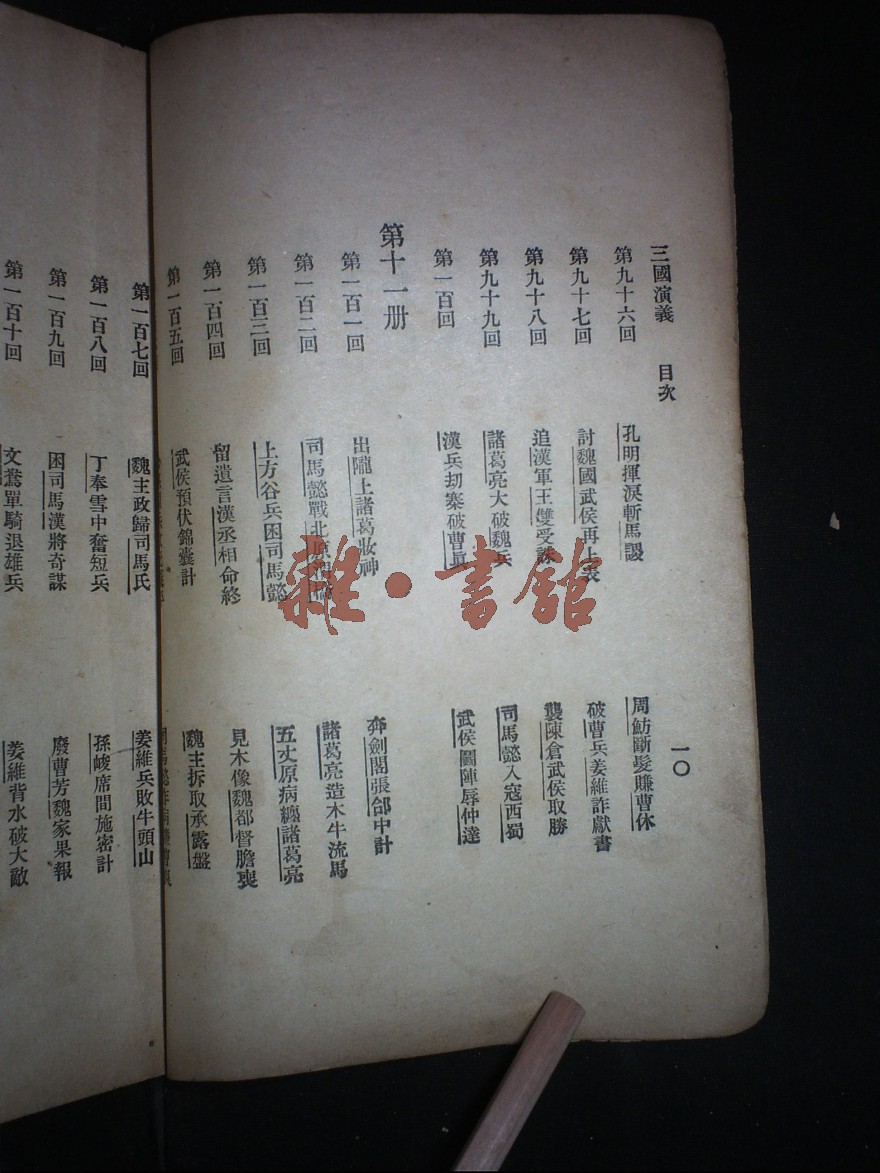 三國演義 目次 一〇
第九十六回 孔明揮淚斬馬謖 周魴斷髮賺曹休
第九十七回 討魏國武侯再上表 破曹兵姜維詐獻書
第九十八回 追漢軍王雙受誅 襲陳倉武侯取勝
第九十九回 諸葛亮大破魏兵 司馬懿入寇西蜀
第一百回 漢兵劫寨破曹眞 武侯鬭陣辱仲達
第十一册
第一百一回 出隴上諸葛妝神 奔劍閣張郃中計
第一百二回 司馬懿戰北原渭橋 諸葛亮造木牛流馬
第一百三回 上方谷兵困司馬懿 五丈原病纏諸葛亮
第一百四回 留遺言漢丞相命終 見木像魏都督膽喪
第一百五回 武侯預伏錦囊計 魏主拆取承露盤
第一百七回 魏主政歸司馬氏 姜維兵敗牛頭山
第一百八回 丁奉雪中奮短兵 孫峻席間施密計
第一百九回 困司馬漢將奇謀 廢曹芳魏家果報
第一百十回 文鴦單騎退雄兵 姜維背水破大敵
雜·書館